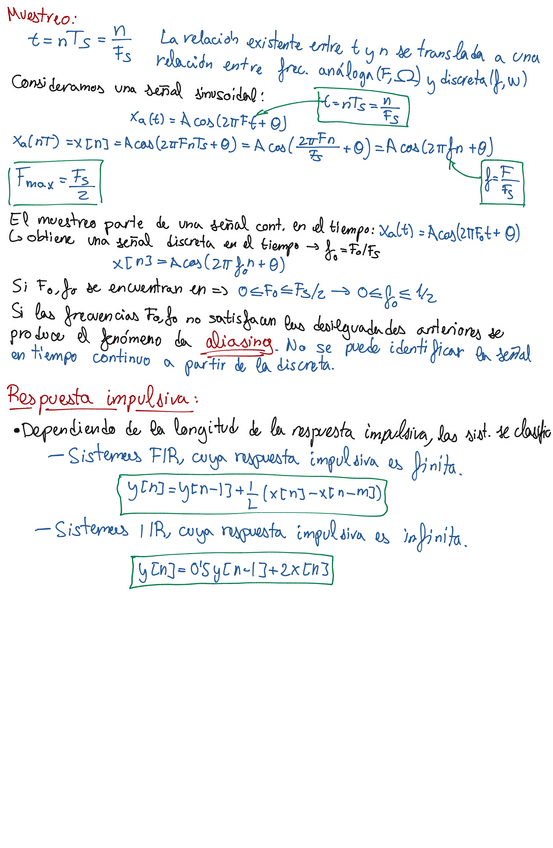 Muestreo:
t = nTs = n/Fs
La relación existente entre t y n se translada a una
relación entre frec. análoga (F, Ω) y discreta (f, ω)
Consideramos una señal sinusoidal:
t = nTs = n/Fs
Xa(t) = A cos(2πFt + θ)
Xa(nT) = x[n] = A cos(2πFnTs + θ) = A cos(2πFn/Fs + θ) = A cos(2πfn + θ)
Fmax = Fs/2
f = F/Fs
El muestreo parte de una señal cont. en el tiempo: Xa(t) = A cos(2πF₀t + θ)
↳ obtiene una señal discreta en el tiempo → f₀ = F₀/Fs
x[n] = A cos(2πf₀n + θ)
Si F₀, f₀ se encuentran en => 0 ≤ F₀ ≤ Fs/2 → 0 ≤ f₀ ≤ 1/2
Si las frecuencias F₀, f₀ no satisfacen las desigualdades anteriores se
produce el fenómeno da aliasing. No se puede identificar la señal
en tiempo continuo a partir de la discreta.
Respuesta impulsiva:
• Dependiendo de la longitud de la respuesta impulsiva, las sist. se clasific
— Sistemas FIR, cuya respuesta impulsiva es finita.
y[n] = y[n-1] + 1/L (x[n] - x[n-m])
— Sistemas IIR, cuya respuesta impulsiva es infinita.
y[n] = 0'5y[n-1] + 2x[n]